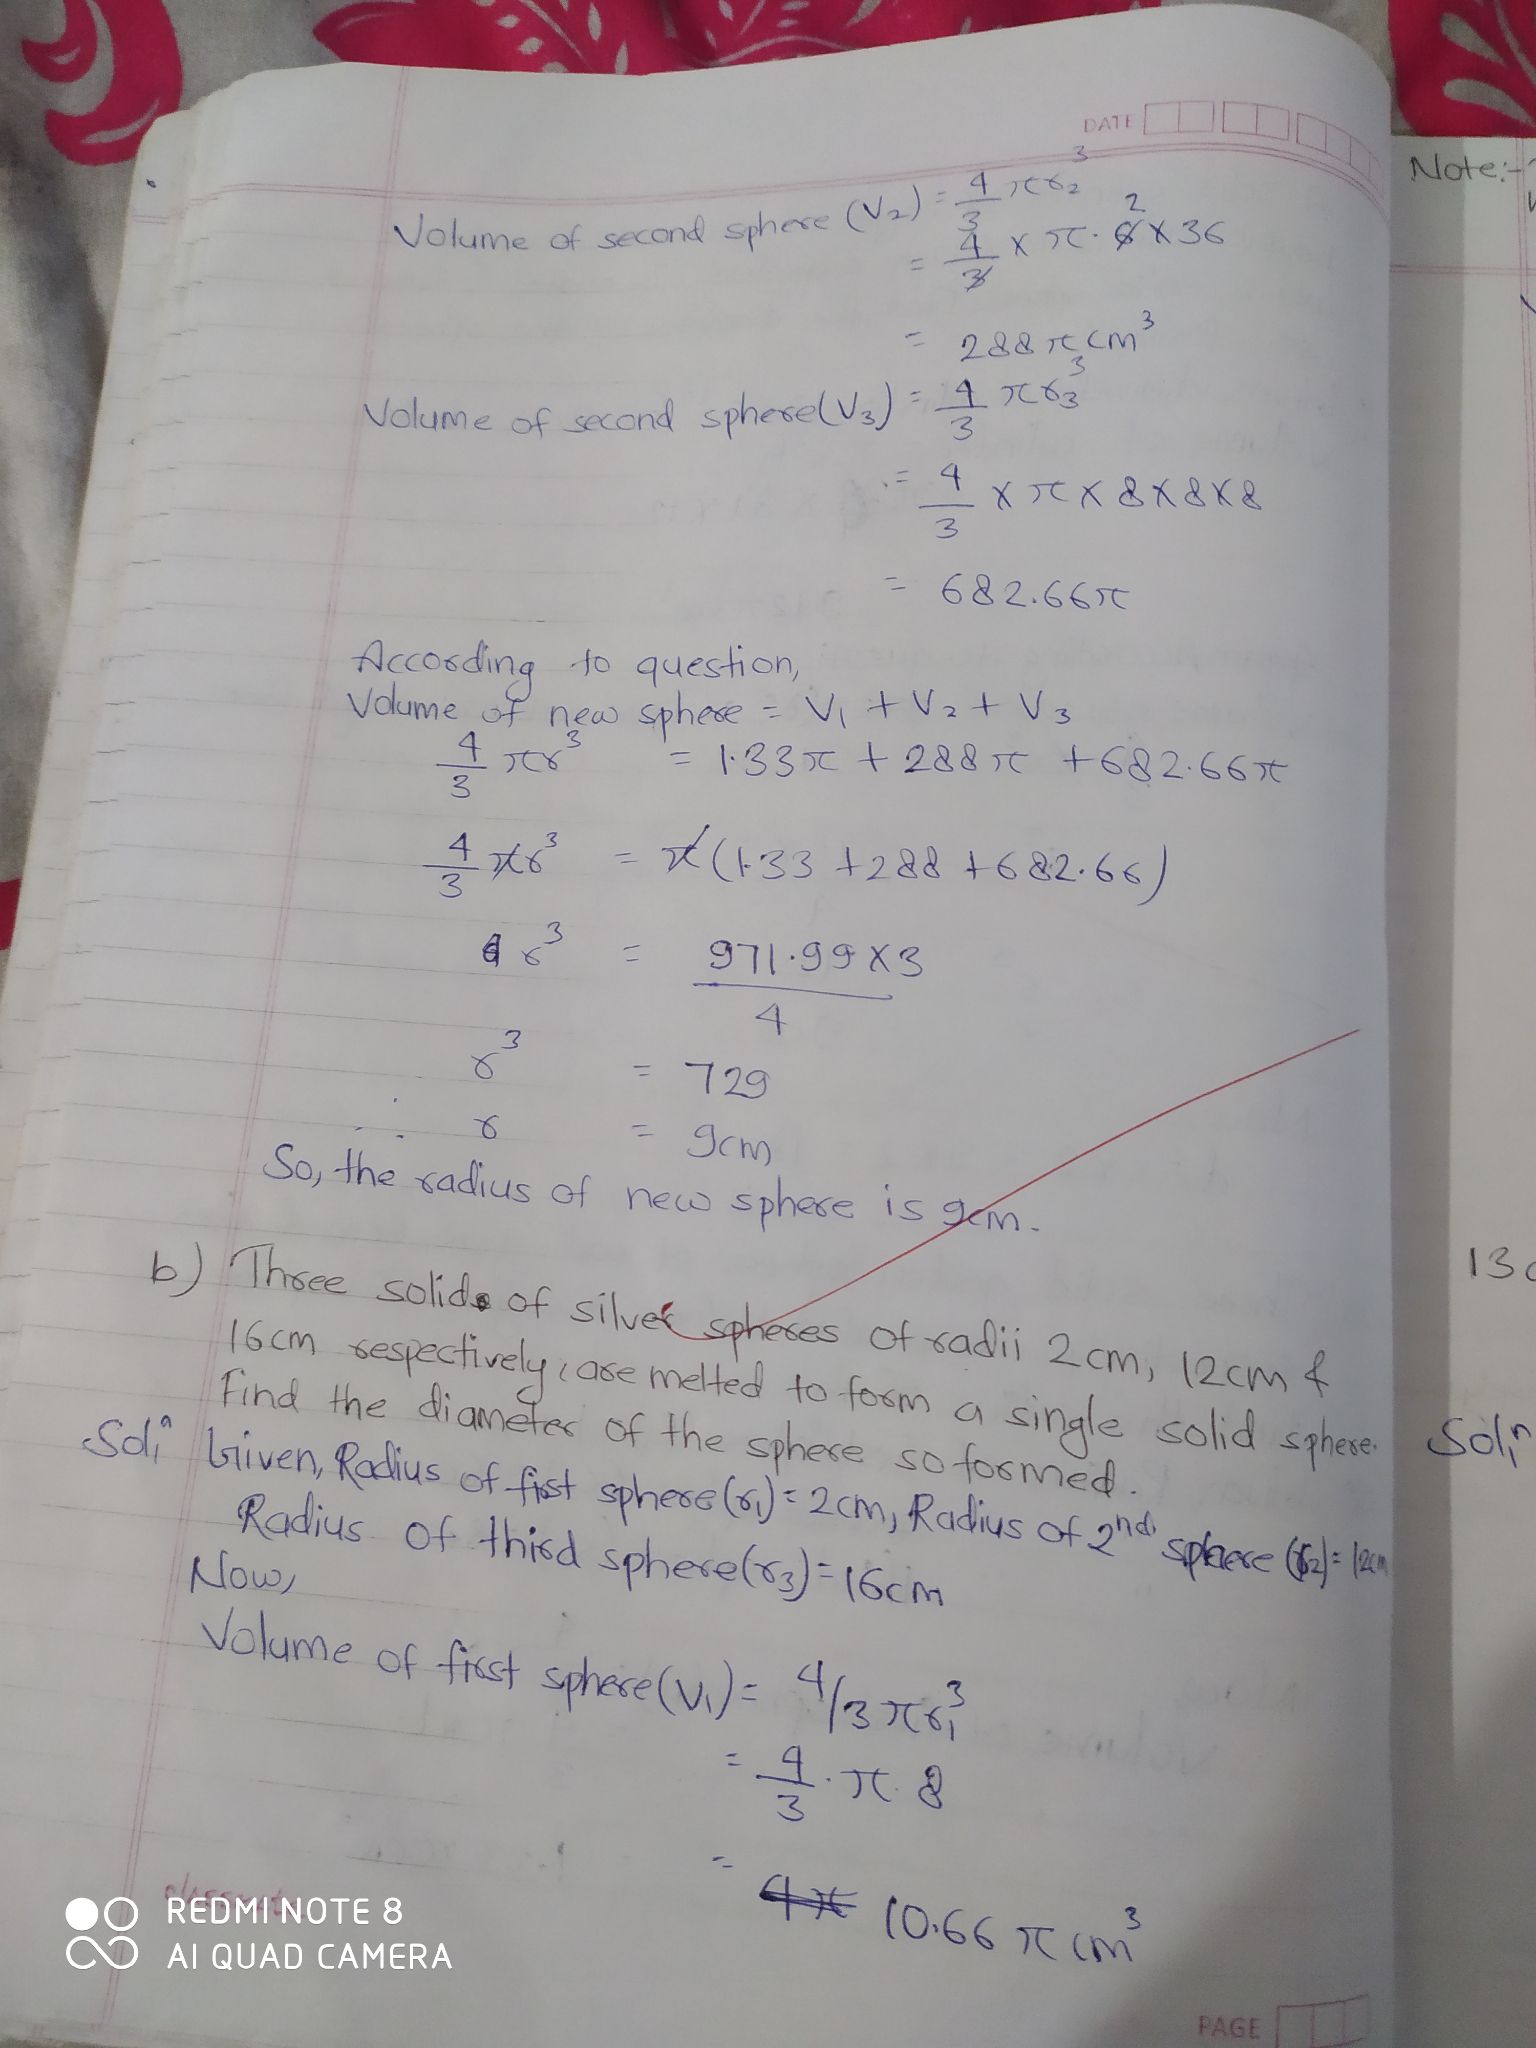 DATE
Volume of second sphere (V₂) = 4/3 πr₂³
= 4/3 × π · 6 2 × 36
= 288 π cm³
Volume of second sphere (V₃) = 4/3 πr₃³
= 4/3 × π × 8 × 8 × 8
= 682.66π
According to question,
Volume of new sphere = V₁ + V₂ + V₃
4/3 πr³ = 1.33π + 288π + 682.66π
4/3 πr³ = π (1.33 + 288 + 682.66)
r³ = 971.99 × 3 / 4
r³ = 729
∴ r = 9cm
So, the radius of new sphere is 9cm.
b) Three solids of silver spheres of radii 2cm, 12cm &
16cm respectively, are melted to form a single solid sphere.
Find the diameter of the sphere so formed.
Solⁿ, Given, Radius of first sphere (r₁) = 2cm, Radius of 2nd sphere (r₂) = 12cm
Radius of third sphere (r₃) = 16cm
Now,
Volume of first sphere (V₁) = 4/3 πr₁³
= 4/3 · π · 8
= 10.66 π cm³
classmate
PAGE
Note:-
13
Solⁿ,
REDMI NOTE 8
AI QUAD CAMERA